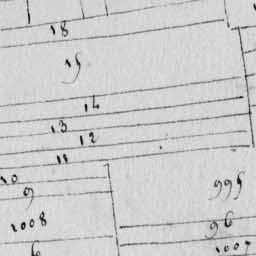 18
15
14
13
12
11
10
9
995
1008
96
6
1007